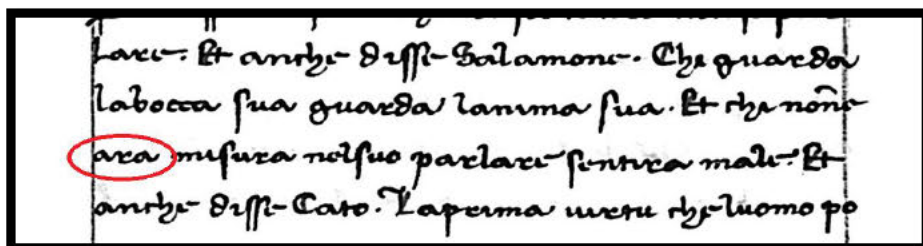 lare. Et anche disse Salamone. Che guarda
labocca sua guarda lanima sua. Et che nōne
ara misura nelsuo parlare sentira male. Et
anche disse Cato. Laprima uirtu cheluomo po